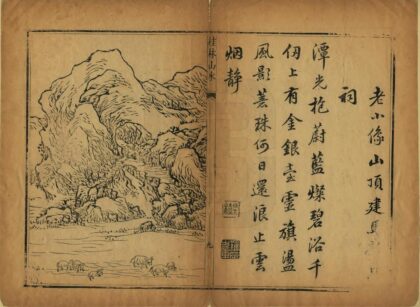 老小係山頂建
祠
潭光抱蔚藍燦碧浴千
仞上有金銀臺靈旗盪
風影珠何日還浪止雲
烟静
桂林山水
九